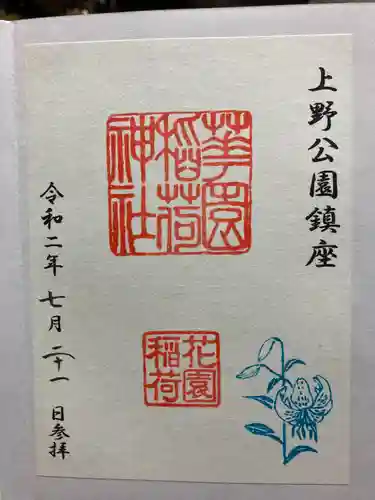 上野公園鎮座
華園
稲荷
神社
花園
稲荷
令和二年 七月 二十一 日参拝